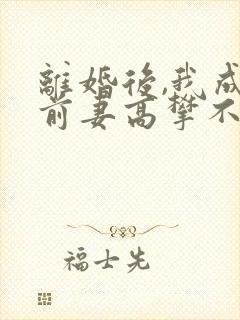 離婚後,我成
前妻高攀不
福士先